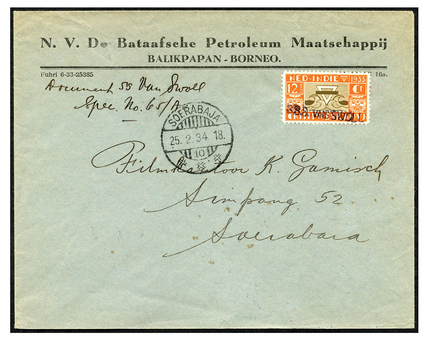 N. V. De Bataafsche Petroleum Maatschappij
BALIKPAPAN - BORNEO.
Fuhri 6-33-25385
16a.
Document SS Van Swoll
Spec. No. 65/A
NED-INDIE 1933
12½ Ct
S.S. VAN SWOLL
SOERABAJA
25. 2. 34. 18.
10
Filmkantoor K. Gamisch
Simpang 52
Soerabara